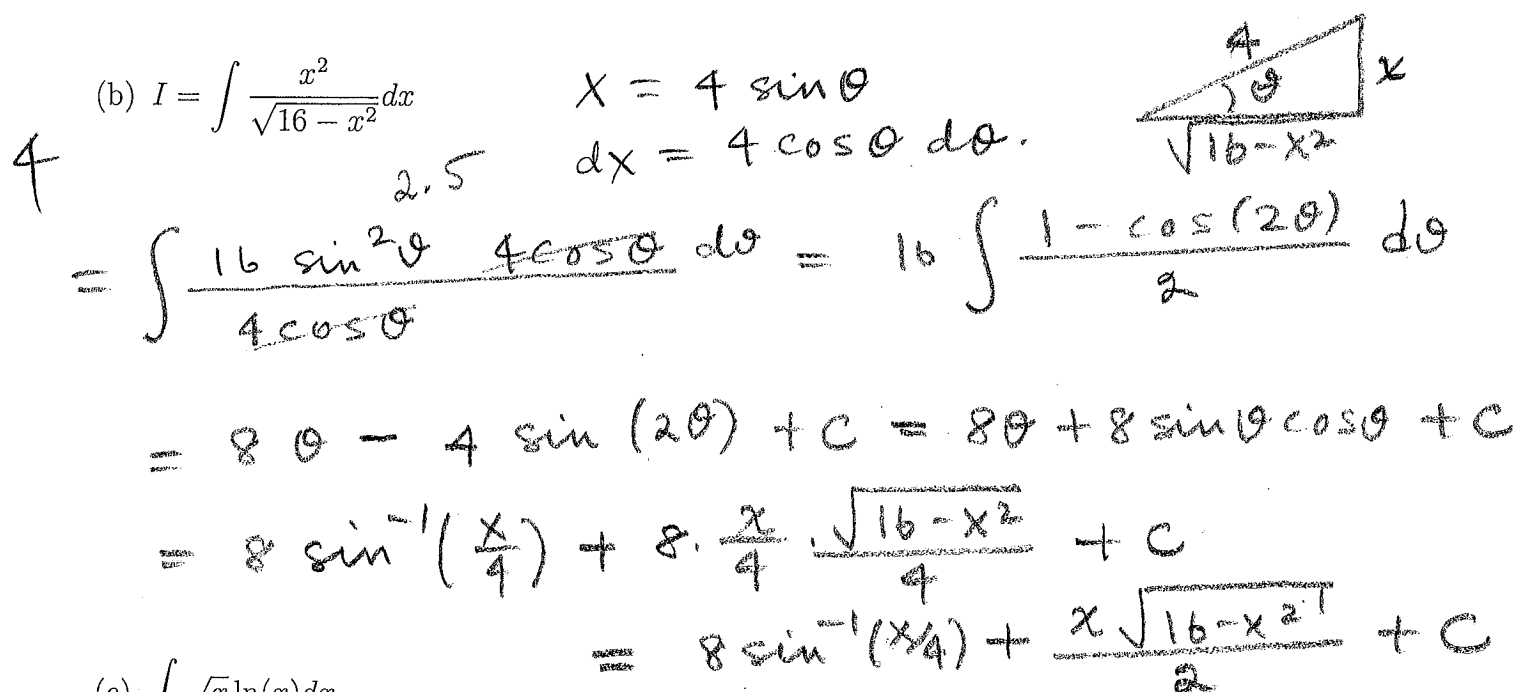 (b) I = ∫ x²/√(16 − x²) dx
x = 4 sin θ
dx = 4 cos θ dθ.
4
θ
x
√(16-x²)
4
2.5
= ∫ (16 sin²θ 4 cos θ)/(4 cos θ) dθ = 16 ∫ (1 - cos(2θ))/2 dθ
= 8θ - 4 sin (2θ) + C = 8θ + 8 sin θ cos θ + C
= 8 sin⁻¹(x/4) + 8. x/4 . √(16-x²)/4 + C
= 8 sin⁻¹(x/4) + x√(16-x²)/2 + C
(c) ∫ √x ln(x) dx